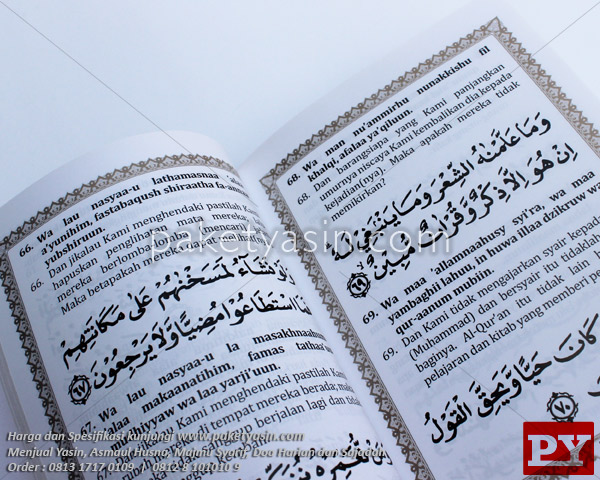 66. Wa lau nasyaa-u lathamasnaa
a'yunihim, fastabaqush shiraatha fa-anna
yubshiruun.
66. Dan jikalau Kami menghendaki pastilah Kami
hapuskan penglihatan mata mereka;
mereka berlomba-lomba
Maka betapakah mereka
وَلَوْ نَشَاءُ لَمَسَخْنٰهُمْ عَلٰى مَكَانَتِهِمْ
فَمَا اسْتَطَاعُوْا مُضِيًّا وَّلَا يَرْجِعُوْنَ ٦٧
67. Wa lau nasyaa-u la masakhnaahum
'alaa makaanatihim, famas tathaa'uu
mudhiyyaw wa laa yarji'uun.
67. Kami menghendaki pastilah Kami
di tempat mereka berada; maka
berjalan lagi dan tidak
68. Wa man nu'ammirhu nunakkishu fil
khalqi, afalaa ya'qiluun.
68. Dan barangsiapa yang Kami panjangkan
umurnya niscaya Kami kembalikan dia kepada
kejadian(nya). Maka apakah mereka tidak
memikirkan?
وَمَا عَلَّمْنٰهُ الشِّعْرَ وَمَا يَنْبَغِيْ لَهُ
اِنْ هُوَ اِلَّا ذِكْرٌ وَّقُرْاٰنٌ مُّبِيْنٌ ٦٩
69. Wa maa 'allamnaahusy syi'ra, wa maa
yambaghii lahuu, in huwa illaa dzikruw wa
qur-aanum mubiin.
69. Dan Kami tidak mengajarkan syair kepada
(Muhammad) dan bersyair itu tidaklah
baginya. Al-Qur'an itu tidak lain
pelajaran dan kitab yang memberi
كَانَ حَيًّا وَّيَحِقَّ الْقَوْلُ
٧٠
paketyasin.com
Harga dan Spesifikasi kunjungi www.paketyasin.com
Menjual Yasin, Asmaul Husna, Majmu Syarif, Doa Harian dan Sajadah
Order : 0813 1717 0109 / 0812 8 101010 9
PY